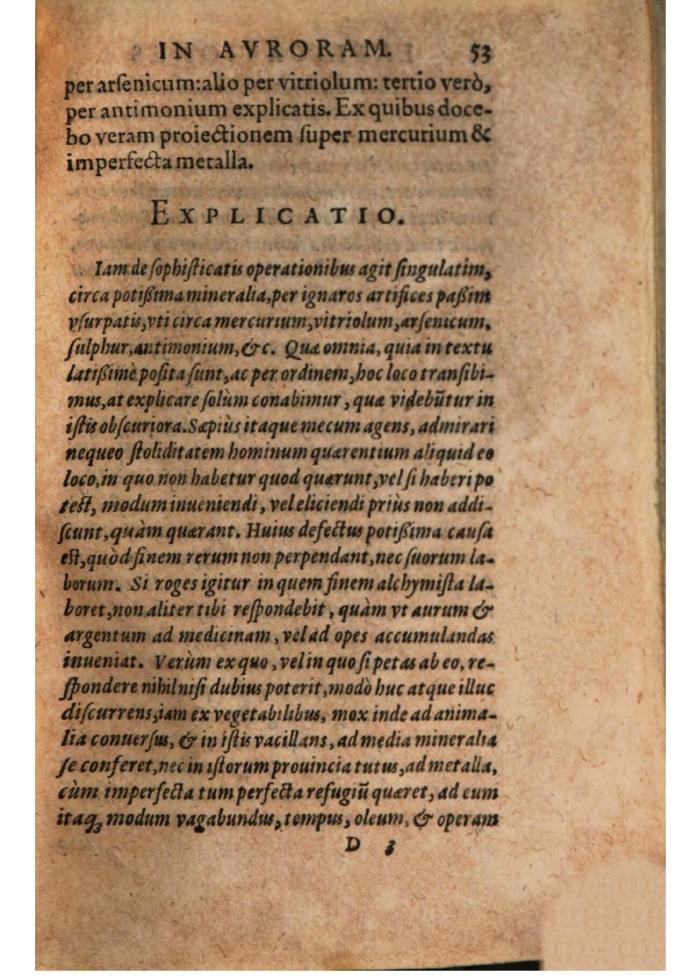 IN AVRORAM. 53
per arſenicum: alio per vitriolum: tertio verò,
per antimonium explicatis. Ex quibus doce-
bo veram proiectionem ſuper mercurium &
imperfecta metalla.
EXPLICATIO.
Iam de ſophiſticatis operationibus agit ſingulatim,
circa potißima mineralia, per ignaros artifices paßim
vſurpatis, vti circa mercurium, vitriolum, arſenicum,
ſulphur, antimonium, &c. Quæ omnia, quia in textu
latißimè poſita ſunt, ac per ordinem, hoc loco tranſibi-
mus, at explicare ſolùm conabimur, quæ videbūtur in
iſtis obſcuriora. Sæpiùs itaque mecum agens, admirari
nequeo ſtoliditatem hominum quærentium aliquid eo
loco, in quo non habetur quod quærunt, vel ſi haberi po
teſt, modum inueniendi, vel eliciendi priùs non addi-
ſcunt, quàm quærant. Huius defectus potißima cauſa
eſt, quòd finem rerum non perpendant, nec ſuorum la-
borum. Si roges igitur in quem finem alchymiſta la-
boret, non aliter tibi reſpondebit, quàm vt aurum &
argentum ad medicinam, vel ad opes accumulandas
inueniat. Verùm ex quo, vel in quo ſi petas ab eo, re-
ſpondere nihil niſi dubius poterit, modò huc atque illuc
diſcurrens, iam ex vegetabilibus, mox inde ad anima-
lia conuerſus, & in iſtis vacillans, ad media mineralia
ſe conferet, nec in iſtorum prouincia tutus, ad metalla,
cùm imperfecta tum perfecta refugiū quæret, ad eum
itaq; modum vagabundus, tempus, oleum, & operam
D 3